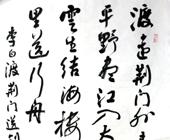 渡遠荆門外
平野尽江入大
雲生结海楼
里送行舟
李白渡荆門送